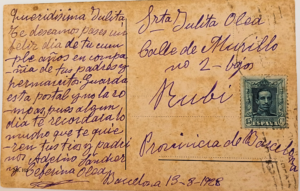 Queridisima Julita
Te deseamos pases un
feliz dia de tu cum
ple años en compa
ñia de tus padres y
hermanitos. Guarda
esta postal y no la ro
mpas, pues algun
dia te recordara lo
mucho que te quie
ren tus tios y padri
nos Adelino Sanchez
Ceferina Olea
Srta Julita Olea
Calle de Murillo
no 2 - bjos
Rubi
Provincia de Barcelona
Barcelona 13-3-1928